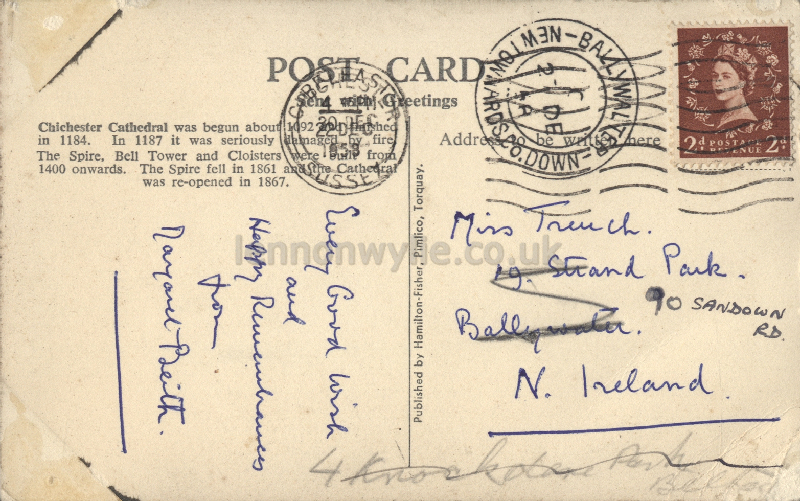 POST CARD
Sent with Greetings
Chichester Cathedral was begun about 1092 and finished
in 1184. In 1187 it was seriously damaged by fire.
The Spire, Bell Tower and Cloisters were built from
1400 onwards. The Spire fell in 1861 and the Cathedral
was re-opened in 1867.
Address to be written here
CHICHESTER
SUSSEX
4
20 DEC
1958
BALLYWALTER
NEWTOWNARDS, CO. DOWN
DE
2d POSTAGE 2d
PENCE
Every Good Wish
and
Happy Remembrances
from
Margaret Beith.
Published by Hamilton-Fisher, Pimlico, Torquay.
Miss Trench.
19. Strand Park.
Ballywater.
N. Ireland.
90 SANDOWN
RD.
4 Knockdene Park
Belfast
lennonwylie.co.uk